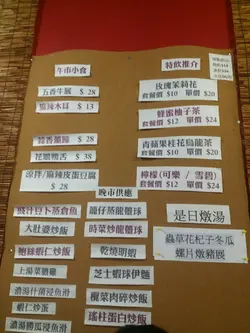 午市小食
五香牛展 $ 28
麻辣木耳 $ 13
$ 28
花雕鴨舌 $ 38
涼拌/麻辣皮蛋豆腐
$ 28
特飲推介
玫瑰茉莉花
套餐價 $10 單價 $20
蜂蜜柚子茶
套餐價 $12 單價 $24
青蘋果桂花烏龍茶
套餐價 $10 單價 $20
檸檬(可樂 / 雪碧)
套餐價 $12 單價 $24
晚市供應
豉汁豆卜蒸倉魚
大肚婆炒飯
鮑絲蝦仁炒飯
上湯菜膽雞
濃湯什菌浸魚滑
蝦仁炒蛋
濃湯勝瓜浸魚滑
籠仔蒸龍躉球
時菜炒龍躉球
乾燒明蝦
芝士蝦球伊麵
欖菜肉碎炒飯
瑤柱蛋白炒飯
是日燉湯
蟲草花杞子冬瓜
螺片燉豬展